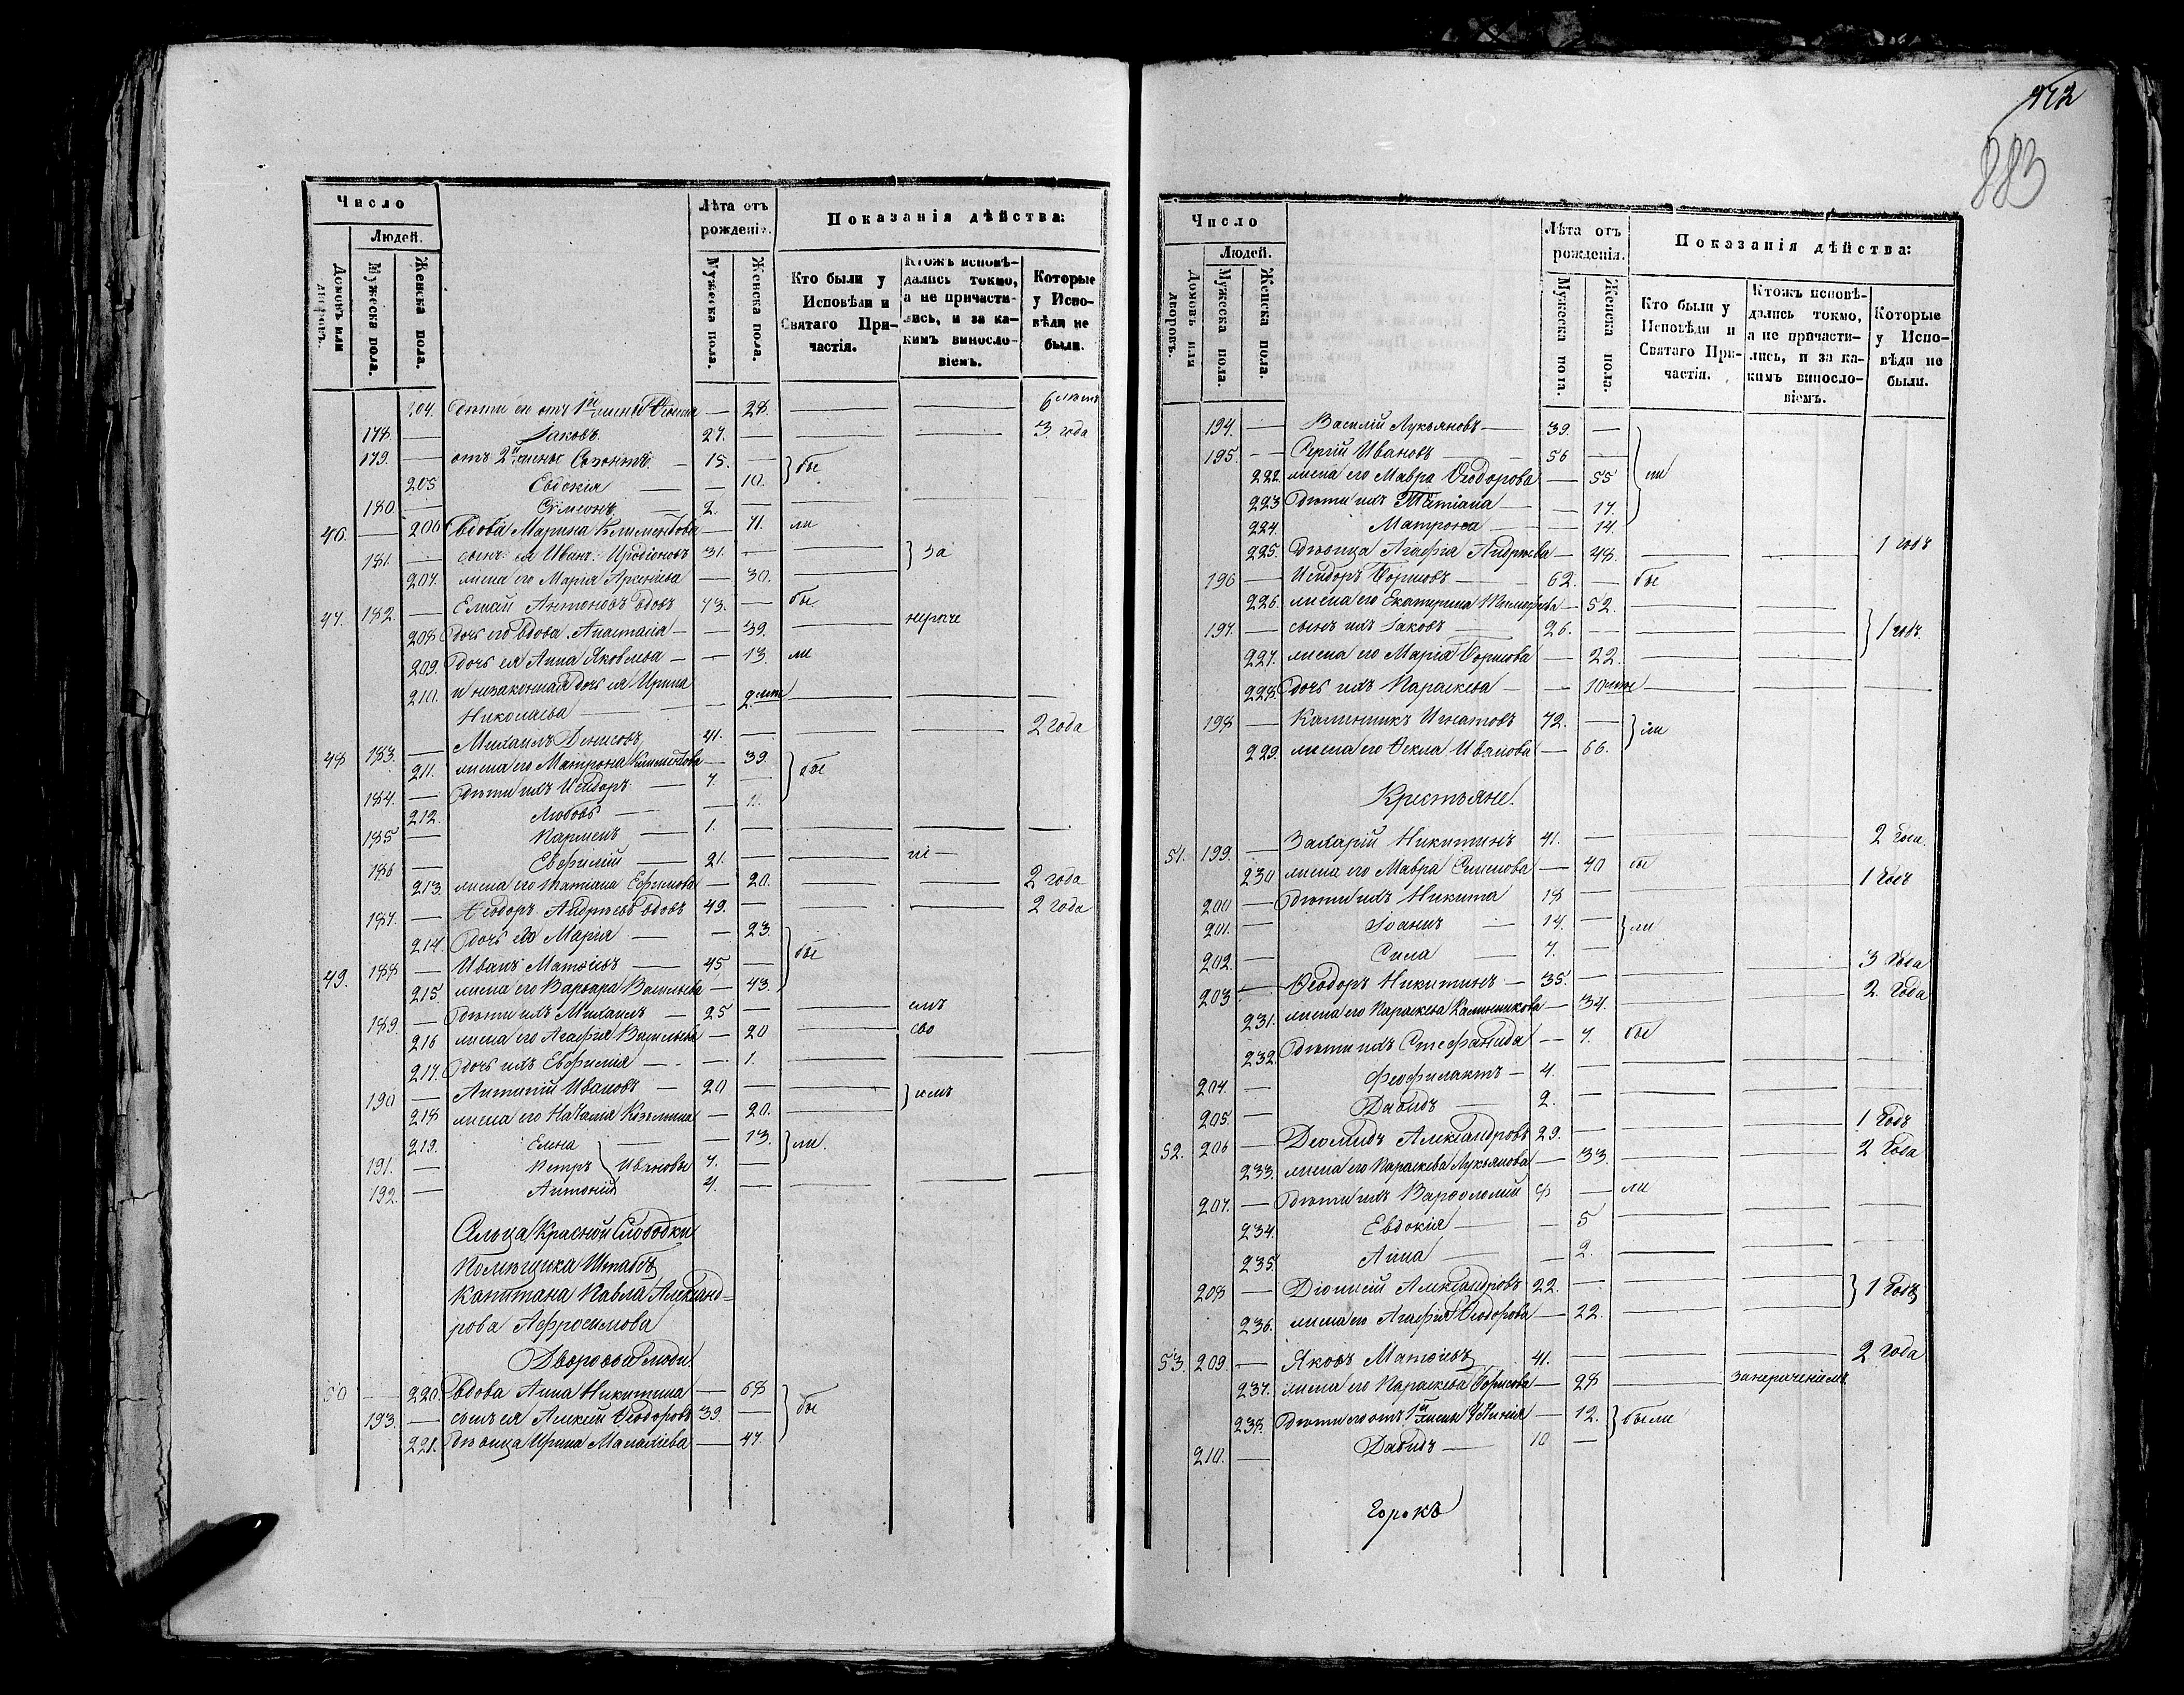 Число
Людей.
Домовъ или дворовъ.
Мужеска пола.
Женска пола.
Лѣта отъ рожденія.
Мужеска пола.
Женска пола.
Показанія дѣйства:
Кто были у Исповѣди и Святаго Причастія.
Ктожъ исповѣдались токмо, а не причастились, и за какимъ винословіемъ.
Которые у Исповѣди не были.
204. дѣти ея отъ 1й — 28. — —
178. — Іаковъ. 27. — — 3. года
179. — отъ 2й жены — 15. — } бы
205 Евдокія — — 10.
180. — Сѵмеонъ. — 2. — — —
46. — 206 Вдова Марина Климентова — 71. ли
181. — сынъ ея Иванъ Иродіоновъ 31. — — } за
207. жена его Марія — 30. —
47. 182. — Антоновъ вдовъ 73. — бы
208 дочь его вдова Анастасія — — 39. —
209. дочь ея Анна Яковлева — — 13. ли
210. и незаконная дочь ея Ирина
Николаева — — — — —
48 183. — Михаилъ Денисовъ 41. — — — 2 года
211. жена его Матрона Климентова — 39. } бы
184. — дѣти ихъ Исидоръ — 7. —
212. Любовь — — 11.
185 — Парменъ — 1. — — — —
186 — Евфимій — 21. — —
213. жена его Татіана Ефимова — 20. — — 2 года
187. — Ѳеодоръ Андреевъ вдовъ 49. — — — 2 года
214. дочь его Марія — — 23. } бы
49. 188 — Иванъ Матѳіевъ — 45 —
215. жена его Варвара Васильева — 43.
189. — дѣти ихъ Михаилъ — 25 — —
216 жена его Агафія Васильева — 20 —
217. дочь ихъ Евфимія — — 1. — — —
190 — Антипій Ивановъ — 20 — — }
218 жена его Наталія Козьмина — 20. —
219. Елена — — 13. } ли.
191. — Петръ } Ивановы 7. —
192. — Антоній 4. — — — —
Сельца Красной Слободки
Помѣщика Штабъ
Капитана Павла Александ-
рова Афросимова
Дворовые люди.
50 — 220. Вдова Анна Никитина — 68 } бы
193. — сынъ ея Алексій Ѳеодоровъ 39. —
221. дѣвица Ирина Малахіева — 47.
883
Число
Людей.
Домовъ или дворовъ.
Мужеска пола.
Женска пола.
Лѣта отъ рожденія.
Мужеска пола.
Женска пола.
Показанія дѣйства:
Кто были у Исповѣди и Святаго Причастія.
Ктожъ исповѣдались токмо, а не причастились, и за какимъ винословіемъ.
Которые у Исповѣди не были.
194. — Василій Лукьяновъ — 39. —
195. — Сергій Ивановъ — 56 — } ли
222 жена его Мавра Ѳеодорова — 55
223 дѣти ихъ Татіана — — 17.
224. Матрона — — 14.
225. дѣвица Агафія Андреева — 48. — — 1 годъ
196 — Исидоръ Борисовъ — 62. — бы
226. жена его Екатерина — 52. — —
197. — сынъ ихъ Іаковъ — 26. — — — } 1 годъ.
227. жена его Марія Борисова — 22. — —
228. дочь ихъ Параскева — — — — —
198 — Калинникъ Игнатовъ 72. — } ли
229. жена его Ѳекла Иванова — 66.
Крестьяне.
51. 199. — Захарій Никитинъ 41. — — — 2 года.
230 жена его Мавра — 40 бы
200 — дѣти ихъ Никита 18 — — — 1 годъ
201. — Іоаннъ — 14. — } ли
202. — Сила — 7. —
203 — Ѳеодоръ Никитинъ — 35. — — — 3 года
231. жена его Параскева Калинникова — 34. — — 2. года
232. дѣти ихъ Стефанида — 7. бы
204. — Феофилактъ — 4. — — — —
205. — Давидъ — 2. — — — —
52. 206 — Діомидъ Александровъ 29. — — — 1 годъ
233. жена его Параскева Лукьянова — 33. — — 2 года
207. — дѣти ихъ Варѳоломій 8 — ли
234. Евдокія — — 5 — — —
235. Анна — — 2. — — —
208 — Діонисій Александровъ 22. — — — } 1 годъ
236. жена его Агафія Ѳеодорова — 22. — —
53. 209. — Яковъ Матѳіевъ 41. — — — 2 года
237. жена его Параскева Борисова — 28 —
238. дѣти его отъ 1й жены — 12. } были
210. — Давидъ — 10 —